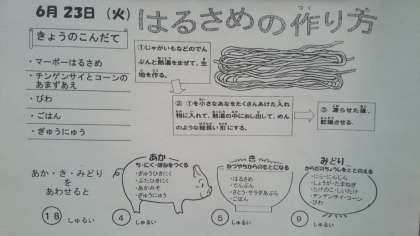 6月23日（火）
はるさめの作り方
つく かた
きょうのこんだて
・マーボーはるさめ
・チンゲンサイとコーンの
あまずあえ
・びわ
・ごはん
・ぎゅうにゅう
①じゃがいもなどのでん
ぷんと熱湯をまぜて、生
地を作る。
② ①を小さなあなをたくさんあけた入れ
物に入れて、熱湯の中におし出して、めん
のような細長い形にする。
③ 凍らせた後、
乾燥させる。
あか・き・みどり
を
あわせると
18 しゅるい
あか
ち・にく・ほねをつくる
・ぎゅうひきにく
・ぶたひきにく
・あかみそ
・ぎゅうにゅう
4 しゅるい
き
ねつやちからのもとになる
・はるさめ
・でんぷん
・さとう・サラダあぶら
・ごはん
5 しゅるい
みどり
からだのちょうしをととのえる
・にら・にんじん
・しょうが・たまねぎ
・たけのこ・しいたけ
・チンゲンサイ・コーン
・びわ
9 しゅるい